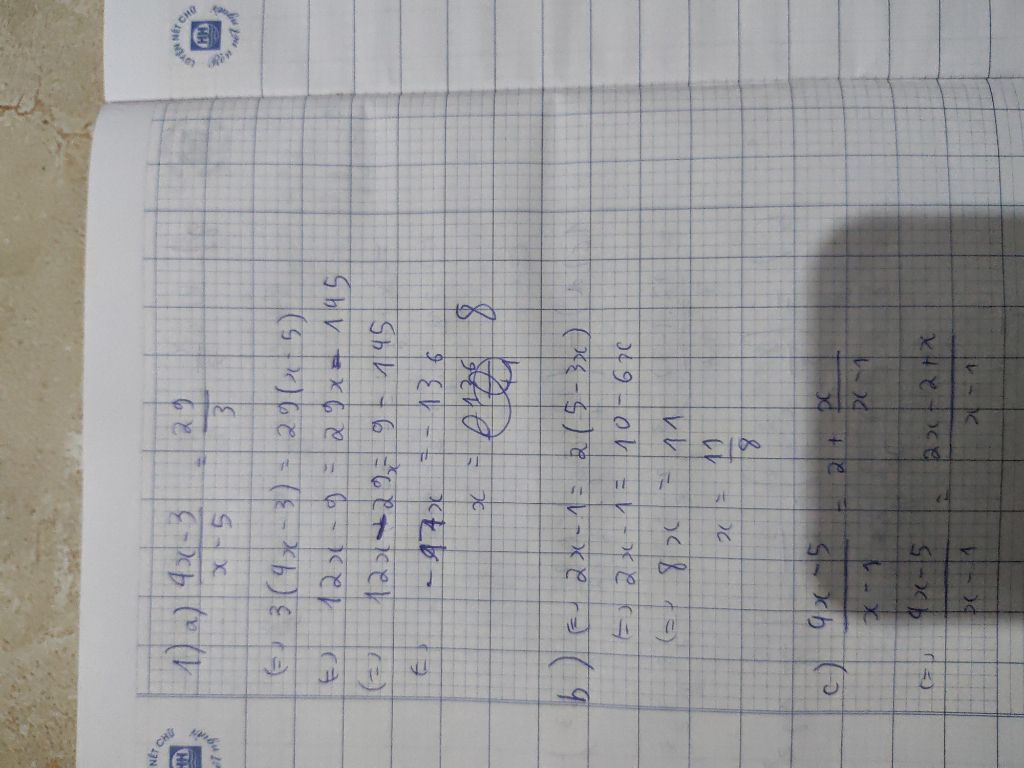 LUYỆN NÉT CHỮ
HH
1) a) \frac{4x-3}{x-5} = \frac{29}{3}
(=) 3(4x-3) = 29(x-5)
(=) 12x-9 = 29x-145
(=) 12x-29x = 9-145
(=) -17x = -136
x = 8
b) (=) 2x-1 = 2(5-3x)
(=) 2x-1 = 10-6x
(=) 8x = 11
x = \frac{11}{8}
c) \frac{4x-5}{x-1} = 2 + \frac{x}{x-1}
(=) \frac{4x-5}{x-1} = \frac{2x-2+x}{x-1}
NÉT CHỮ